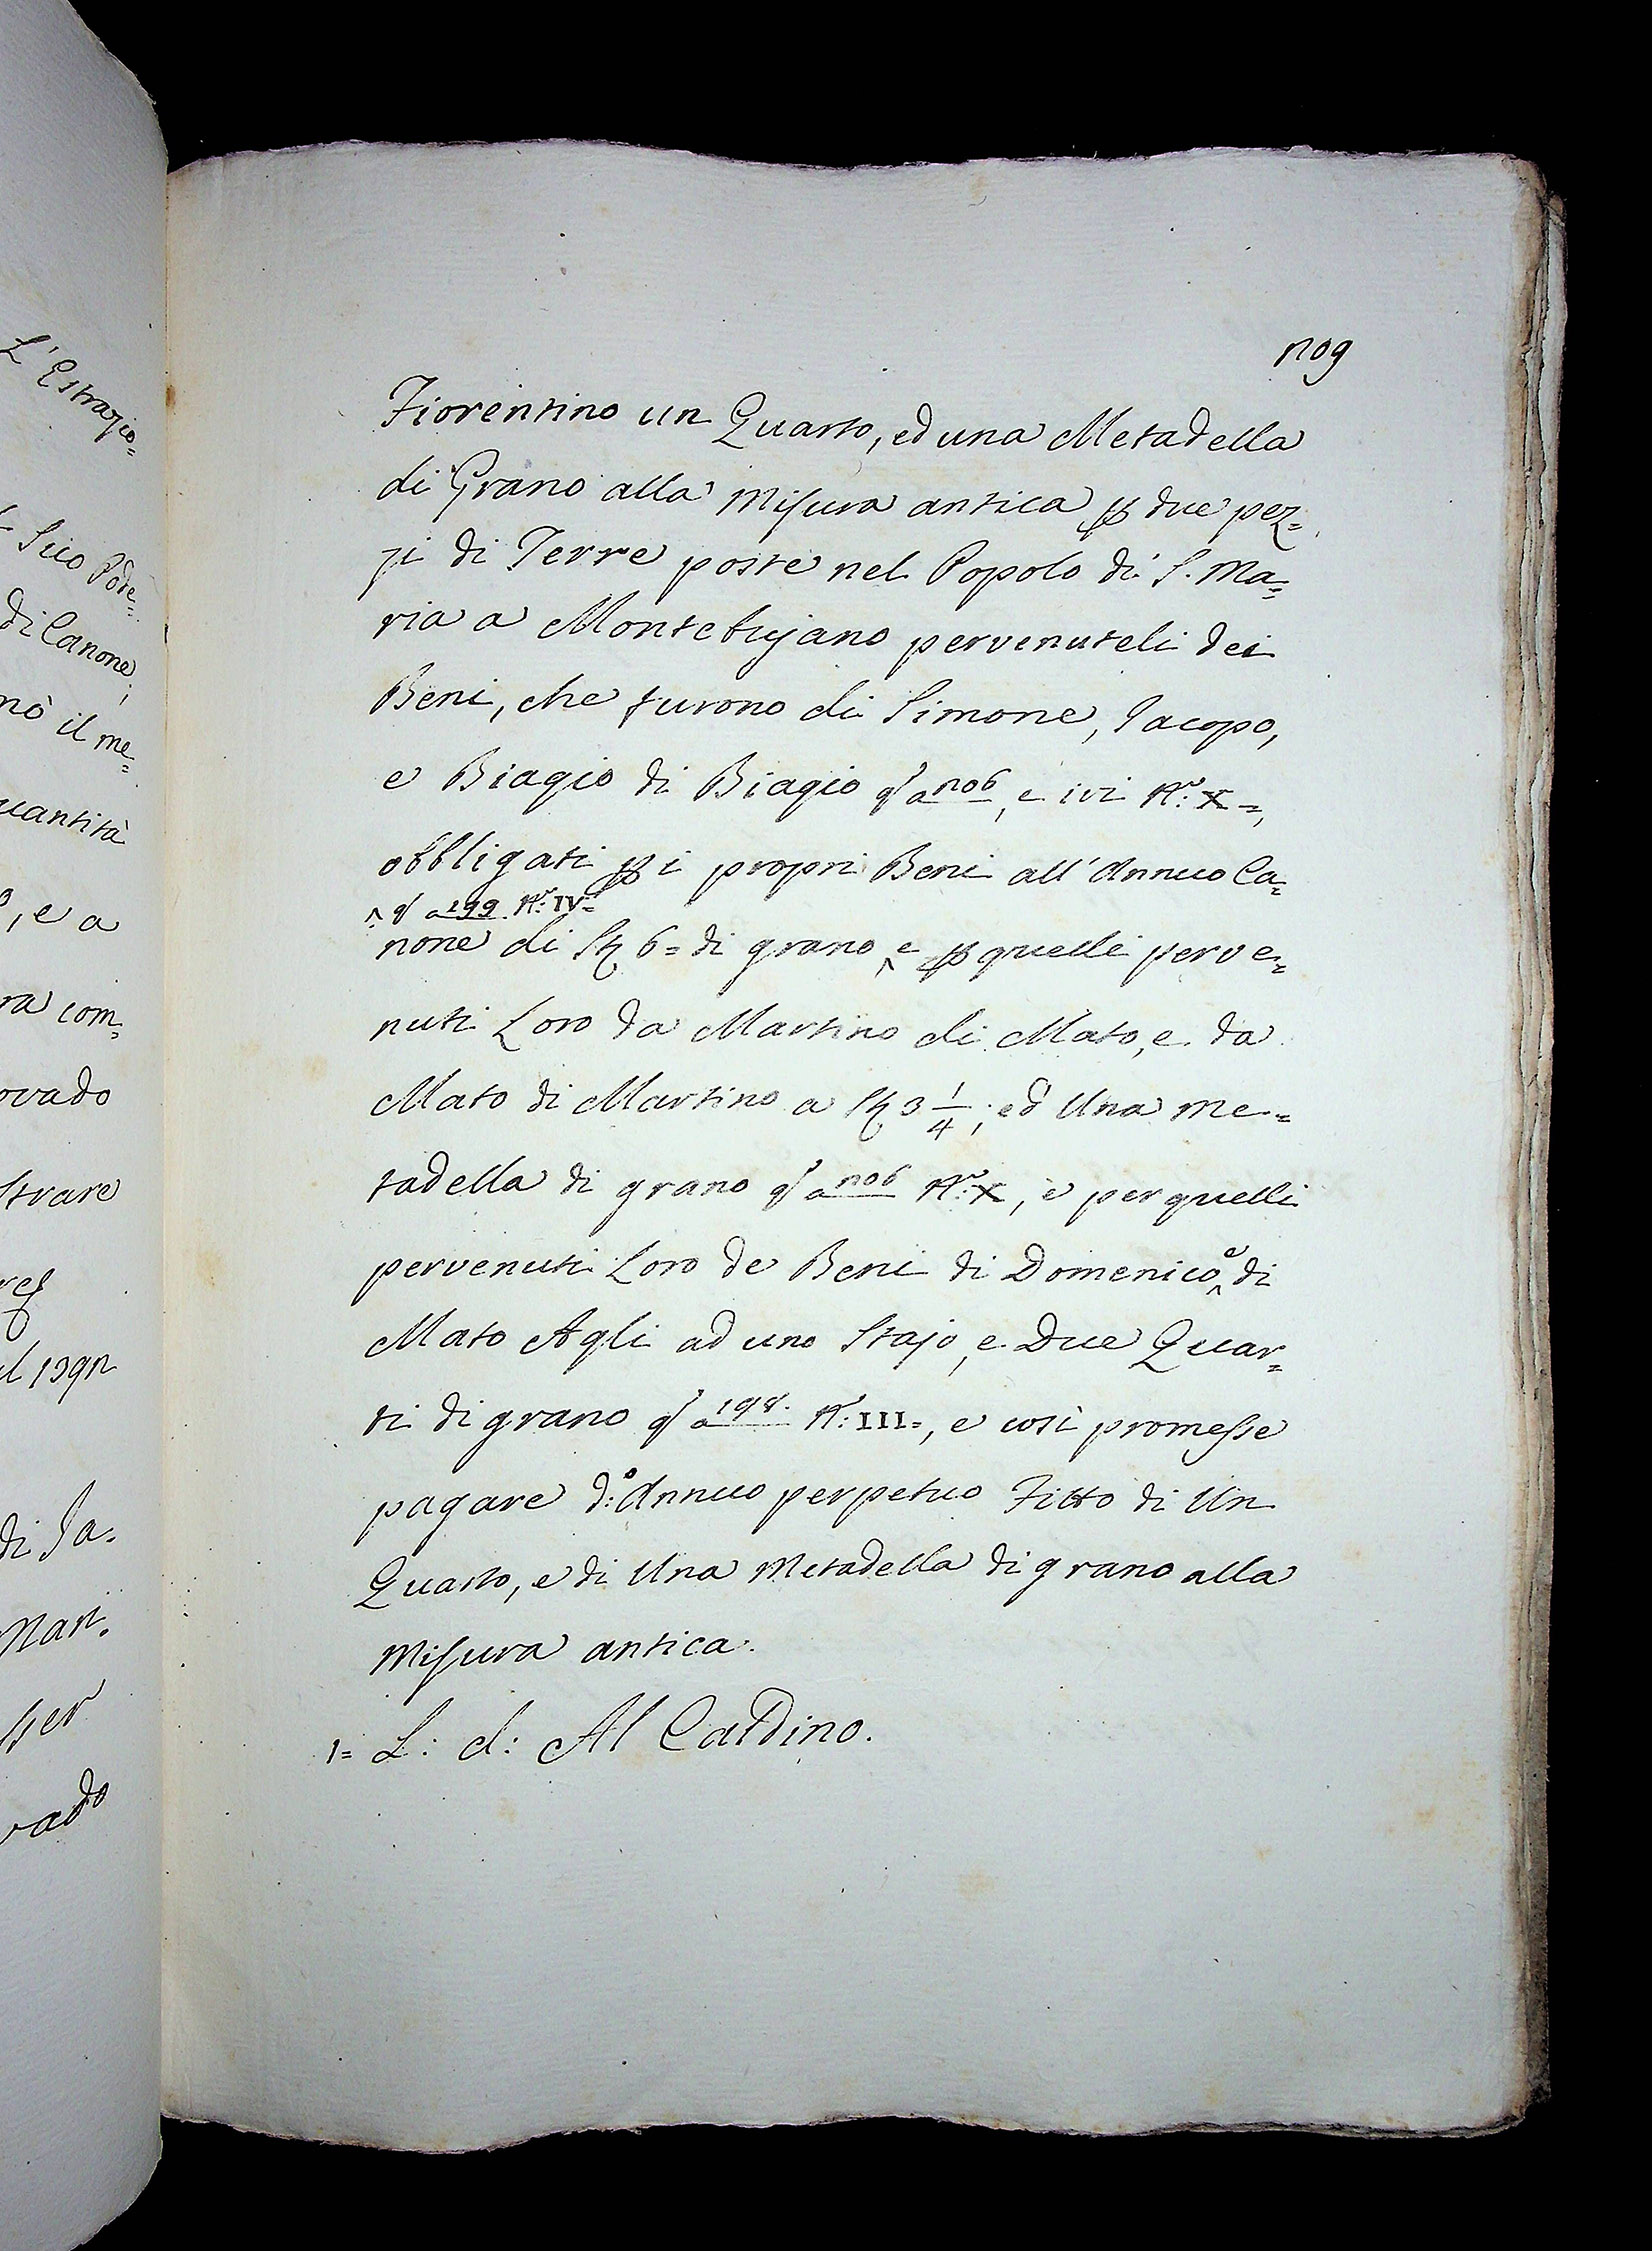 L'Estrazio=
Suo Pode=
di Canone;
nò il me=
uantità
, e a
ra com=
ovado
strare
l 1392
di Ja=
Mar.
ser
vado
209
Fiorentino un Quarto, ed una Metadella
di Grano alla Misura antica ꝑ due pez=
zi di Terre poste nel Popolo di S. Ma=
ria a Montebujano pervenuteli dei
Beni, che furono di Simone, Jacopo,
e Biagio di Biagio q.ͥ a 206, e ivi N.º: X=,
obbligati ꝑ i propri Beni all'Annuo Ca=
^ q.ͥ a 199 N.º: IV=
none di St 6= di grano ^ e ꝑ quelli perve=
nuti Loro da Martino di Mato, e da
Mato di Martino a St 3 1/4; ed Una me=
tadella di grano q.ͥ a 206 N.º: X, e per quelli
pervenuti Loro de Beni di Domenico ^e di
Mato Agli ad uno Stajo, e Due Quar=
ti di grano q.ͥ a 198. N.º: III=, e così promesse
pagare d:º Annuo perpetuo Fitto di Un
Quarto, e di Una Metadella di grano alla
Misura antica.
1= L: d: Al Caldino.